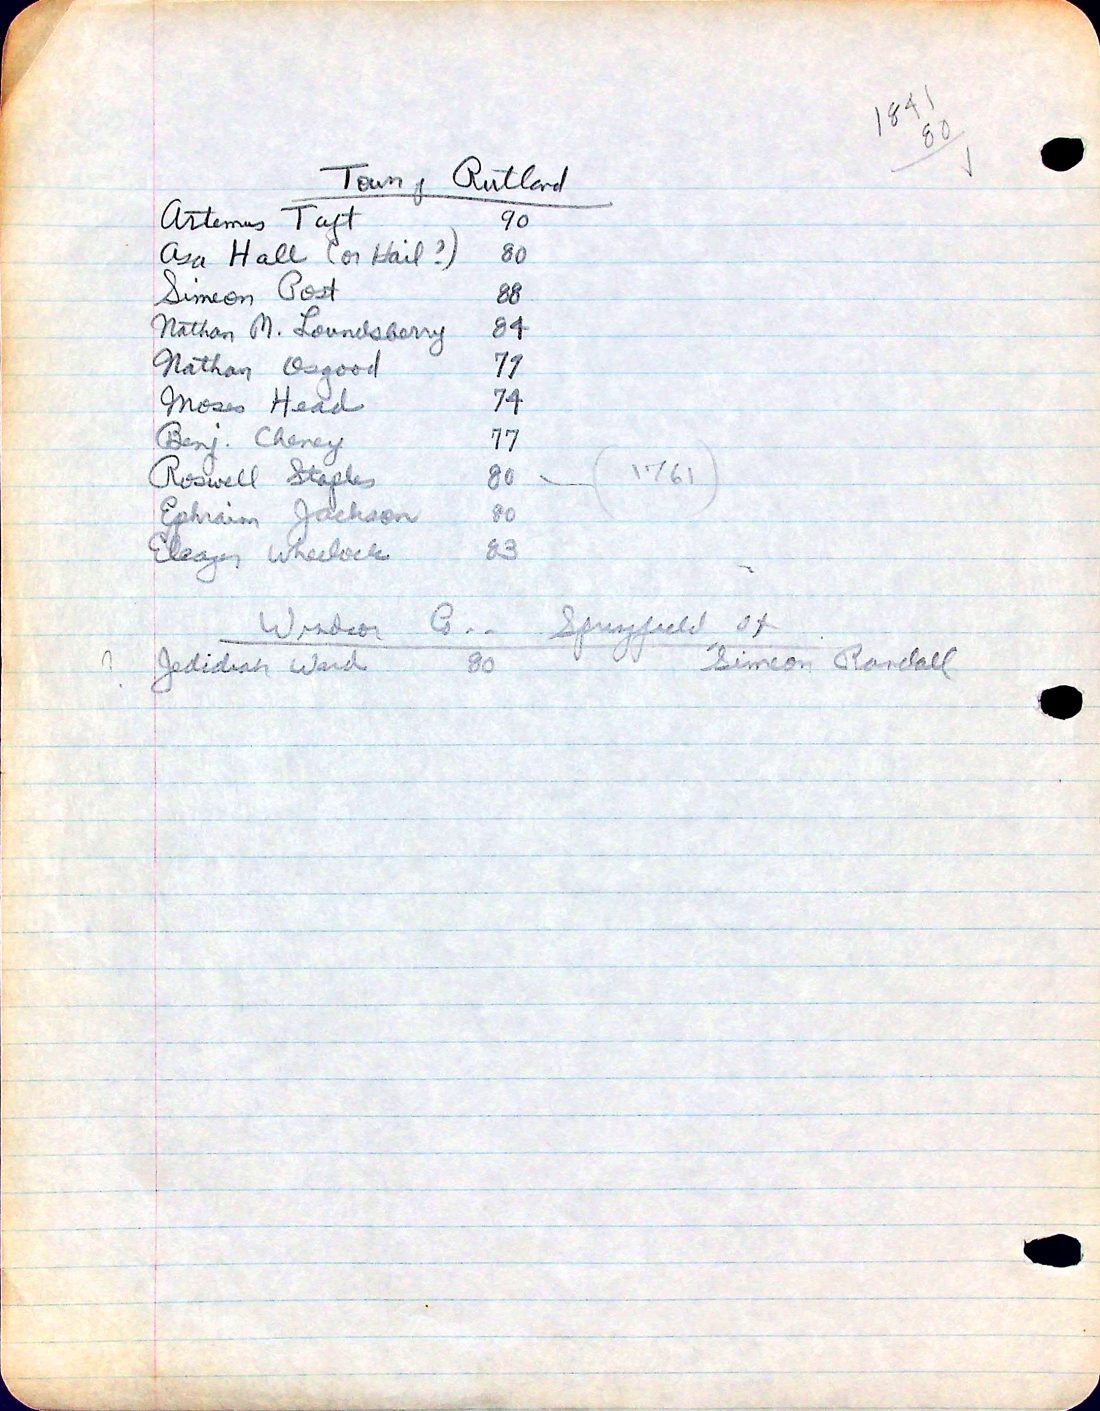 1841
80
1
Town of Rutland
Artemus Taft 90
Asa Hall (or Hail?) 80
Simeon Post 88
Nathan M. Loundsberry 84
Nathan Osgood 79
Moses Head 74
Benj. Cheney 77
Roswell Staples 80 (1761)
Ephraim Jackson 80
Eleazer Wheelock 83
Windsor Co.. Springfield Vt
? Jedidiah Ward 80 Simeon Randall